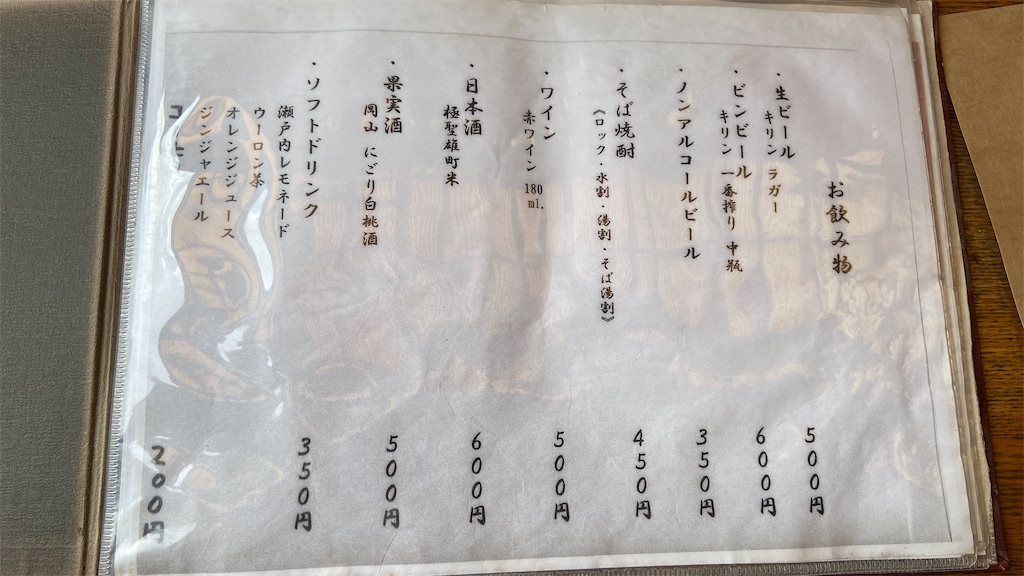 お飲み物
・生ビール 500円
キリン ラガー
・ビンビール 600円
キリン 一番搾り 中瓶
・ノンアルコールビール 350円
・そば焼酎 450円
《ロック・水割・湯割・そば湯割》
・ワイン 500円
赤ワイン 180ml.
・日本酒 600円
極聖雄町米
・果実酒 500円
岡山 にごり白桃酒
・ソフトドリンク 350円
瀬戸内レモネード
ウーロン茶
オレンジジュース
ジンジャエール
200円